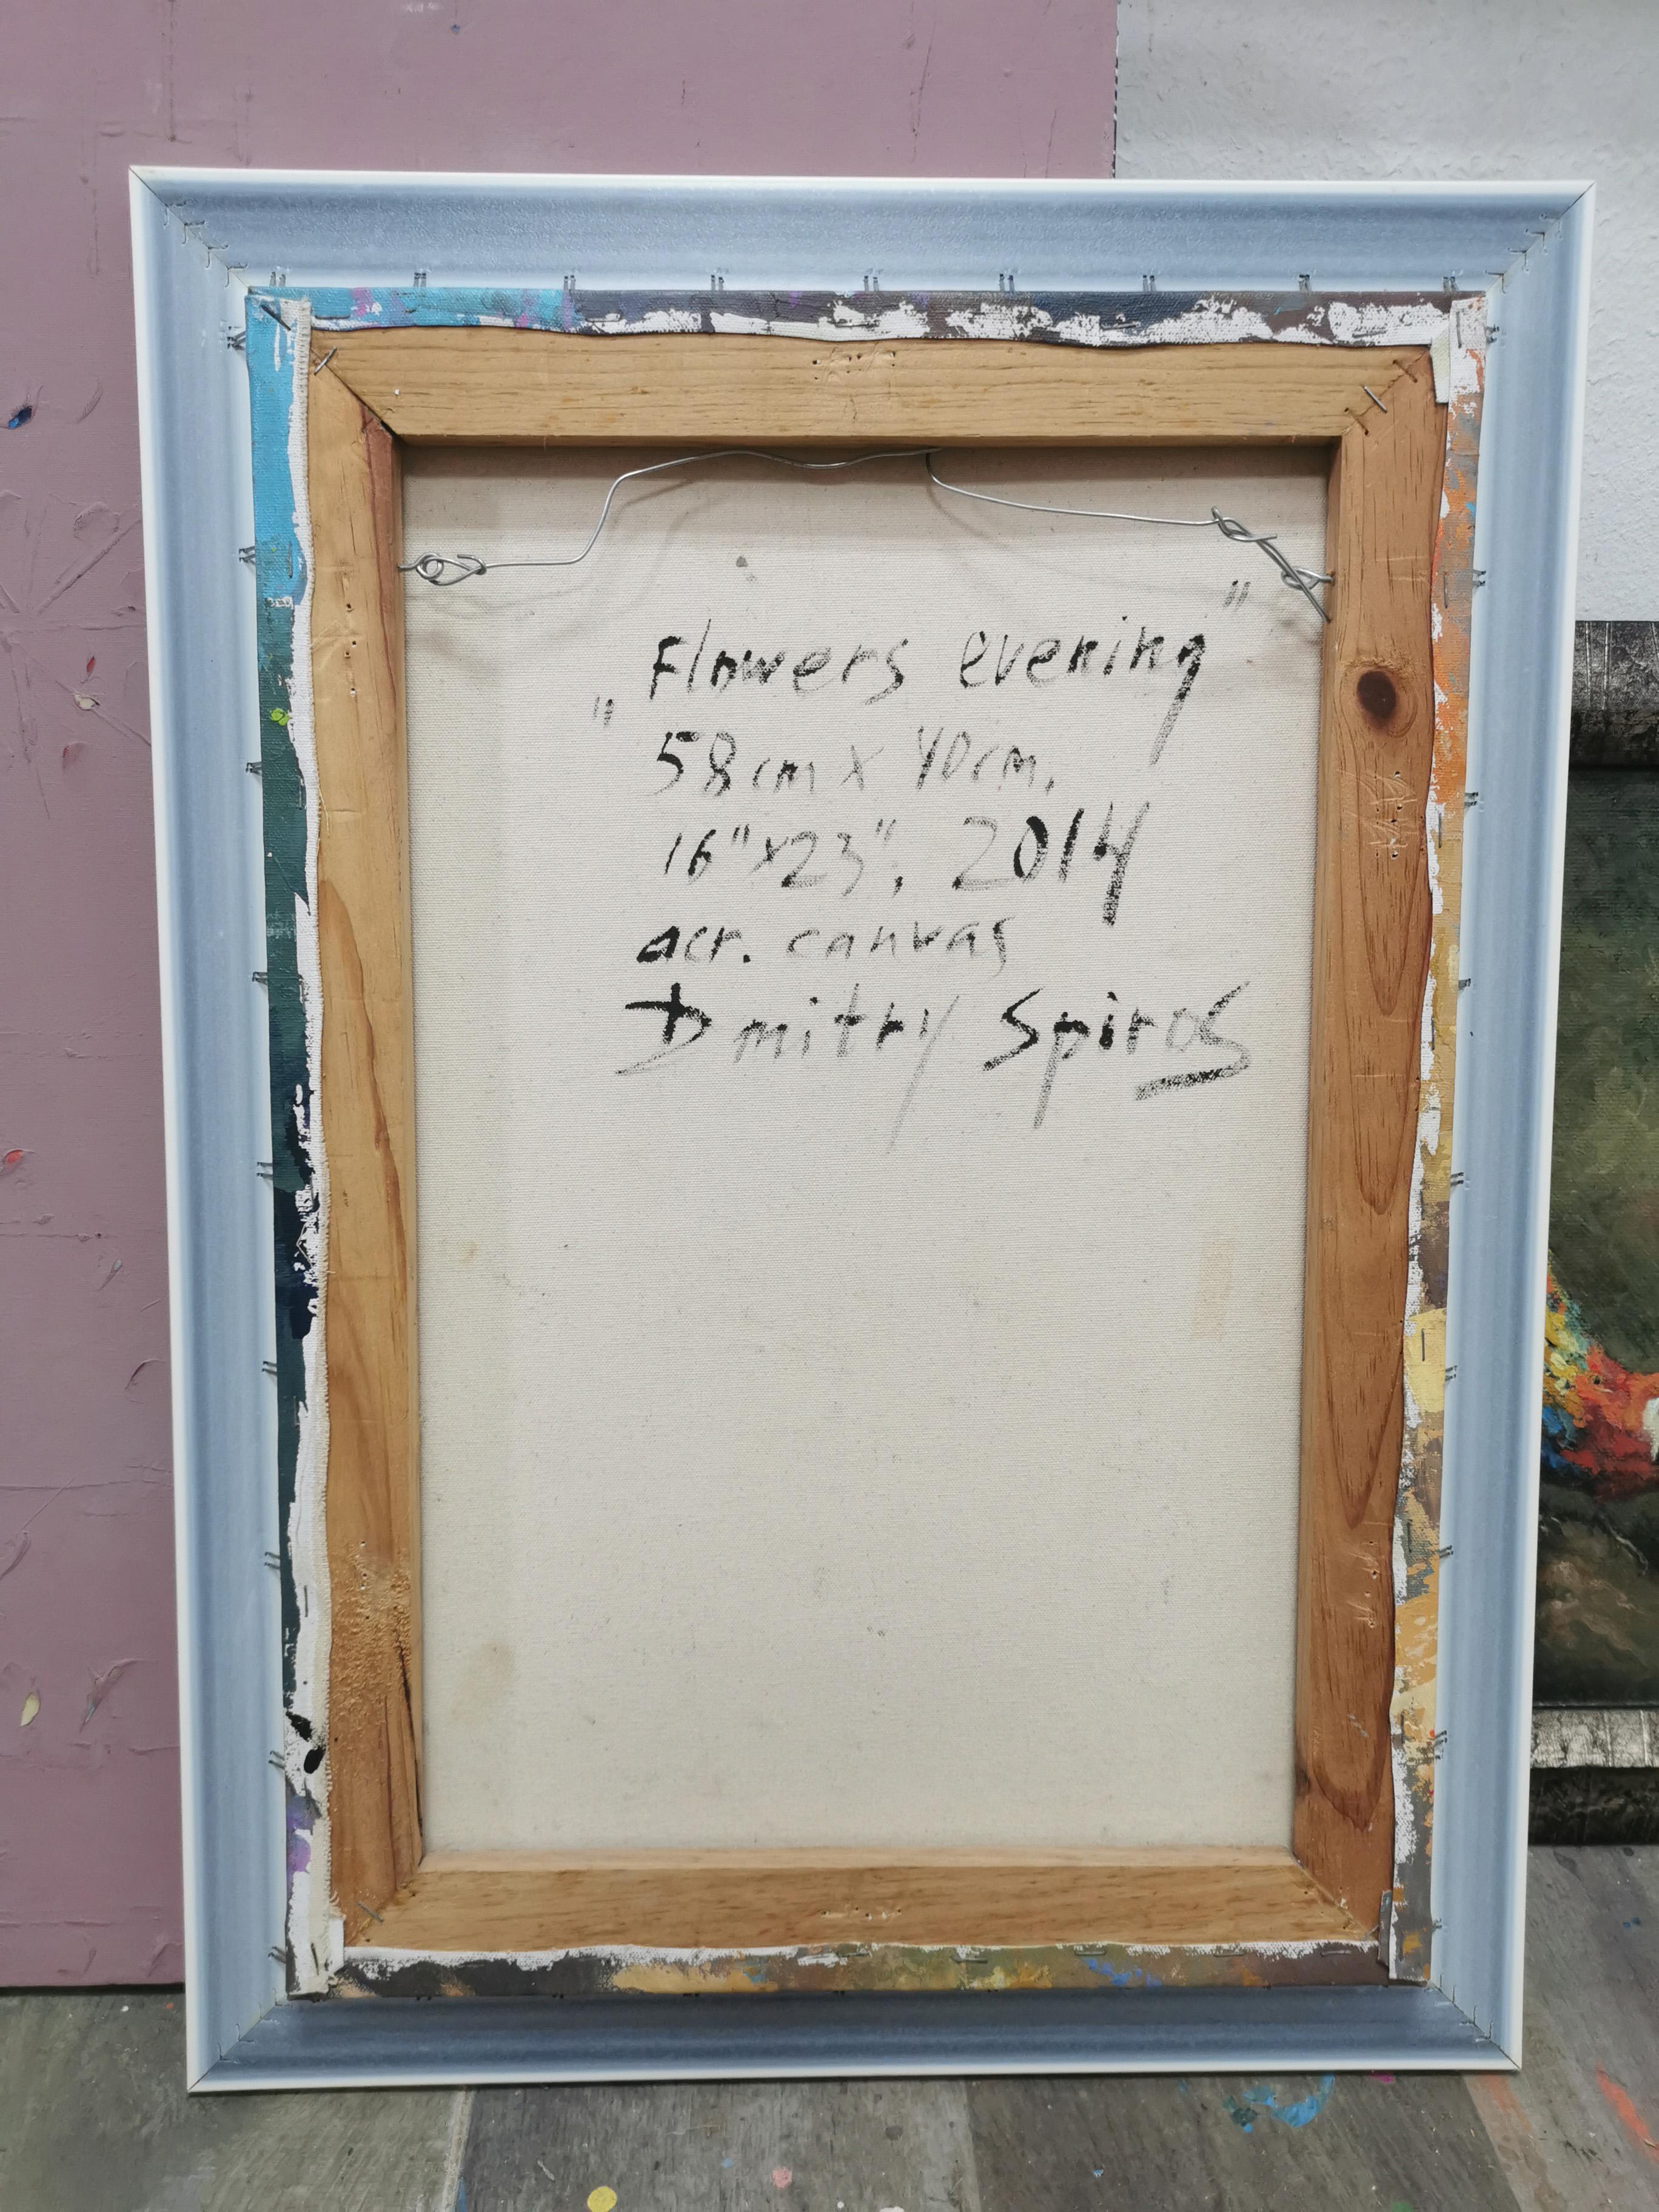 „Flowers evening"
58cm x 40cm.
16"x23", 2014
acr. canvas
Dmitry Spiros